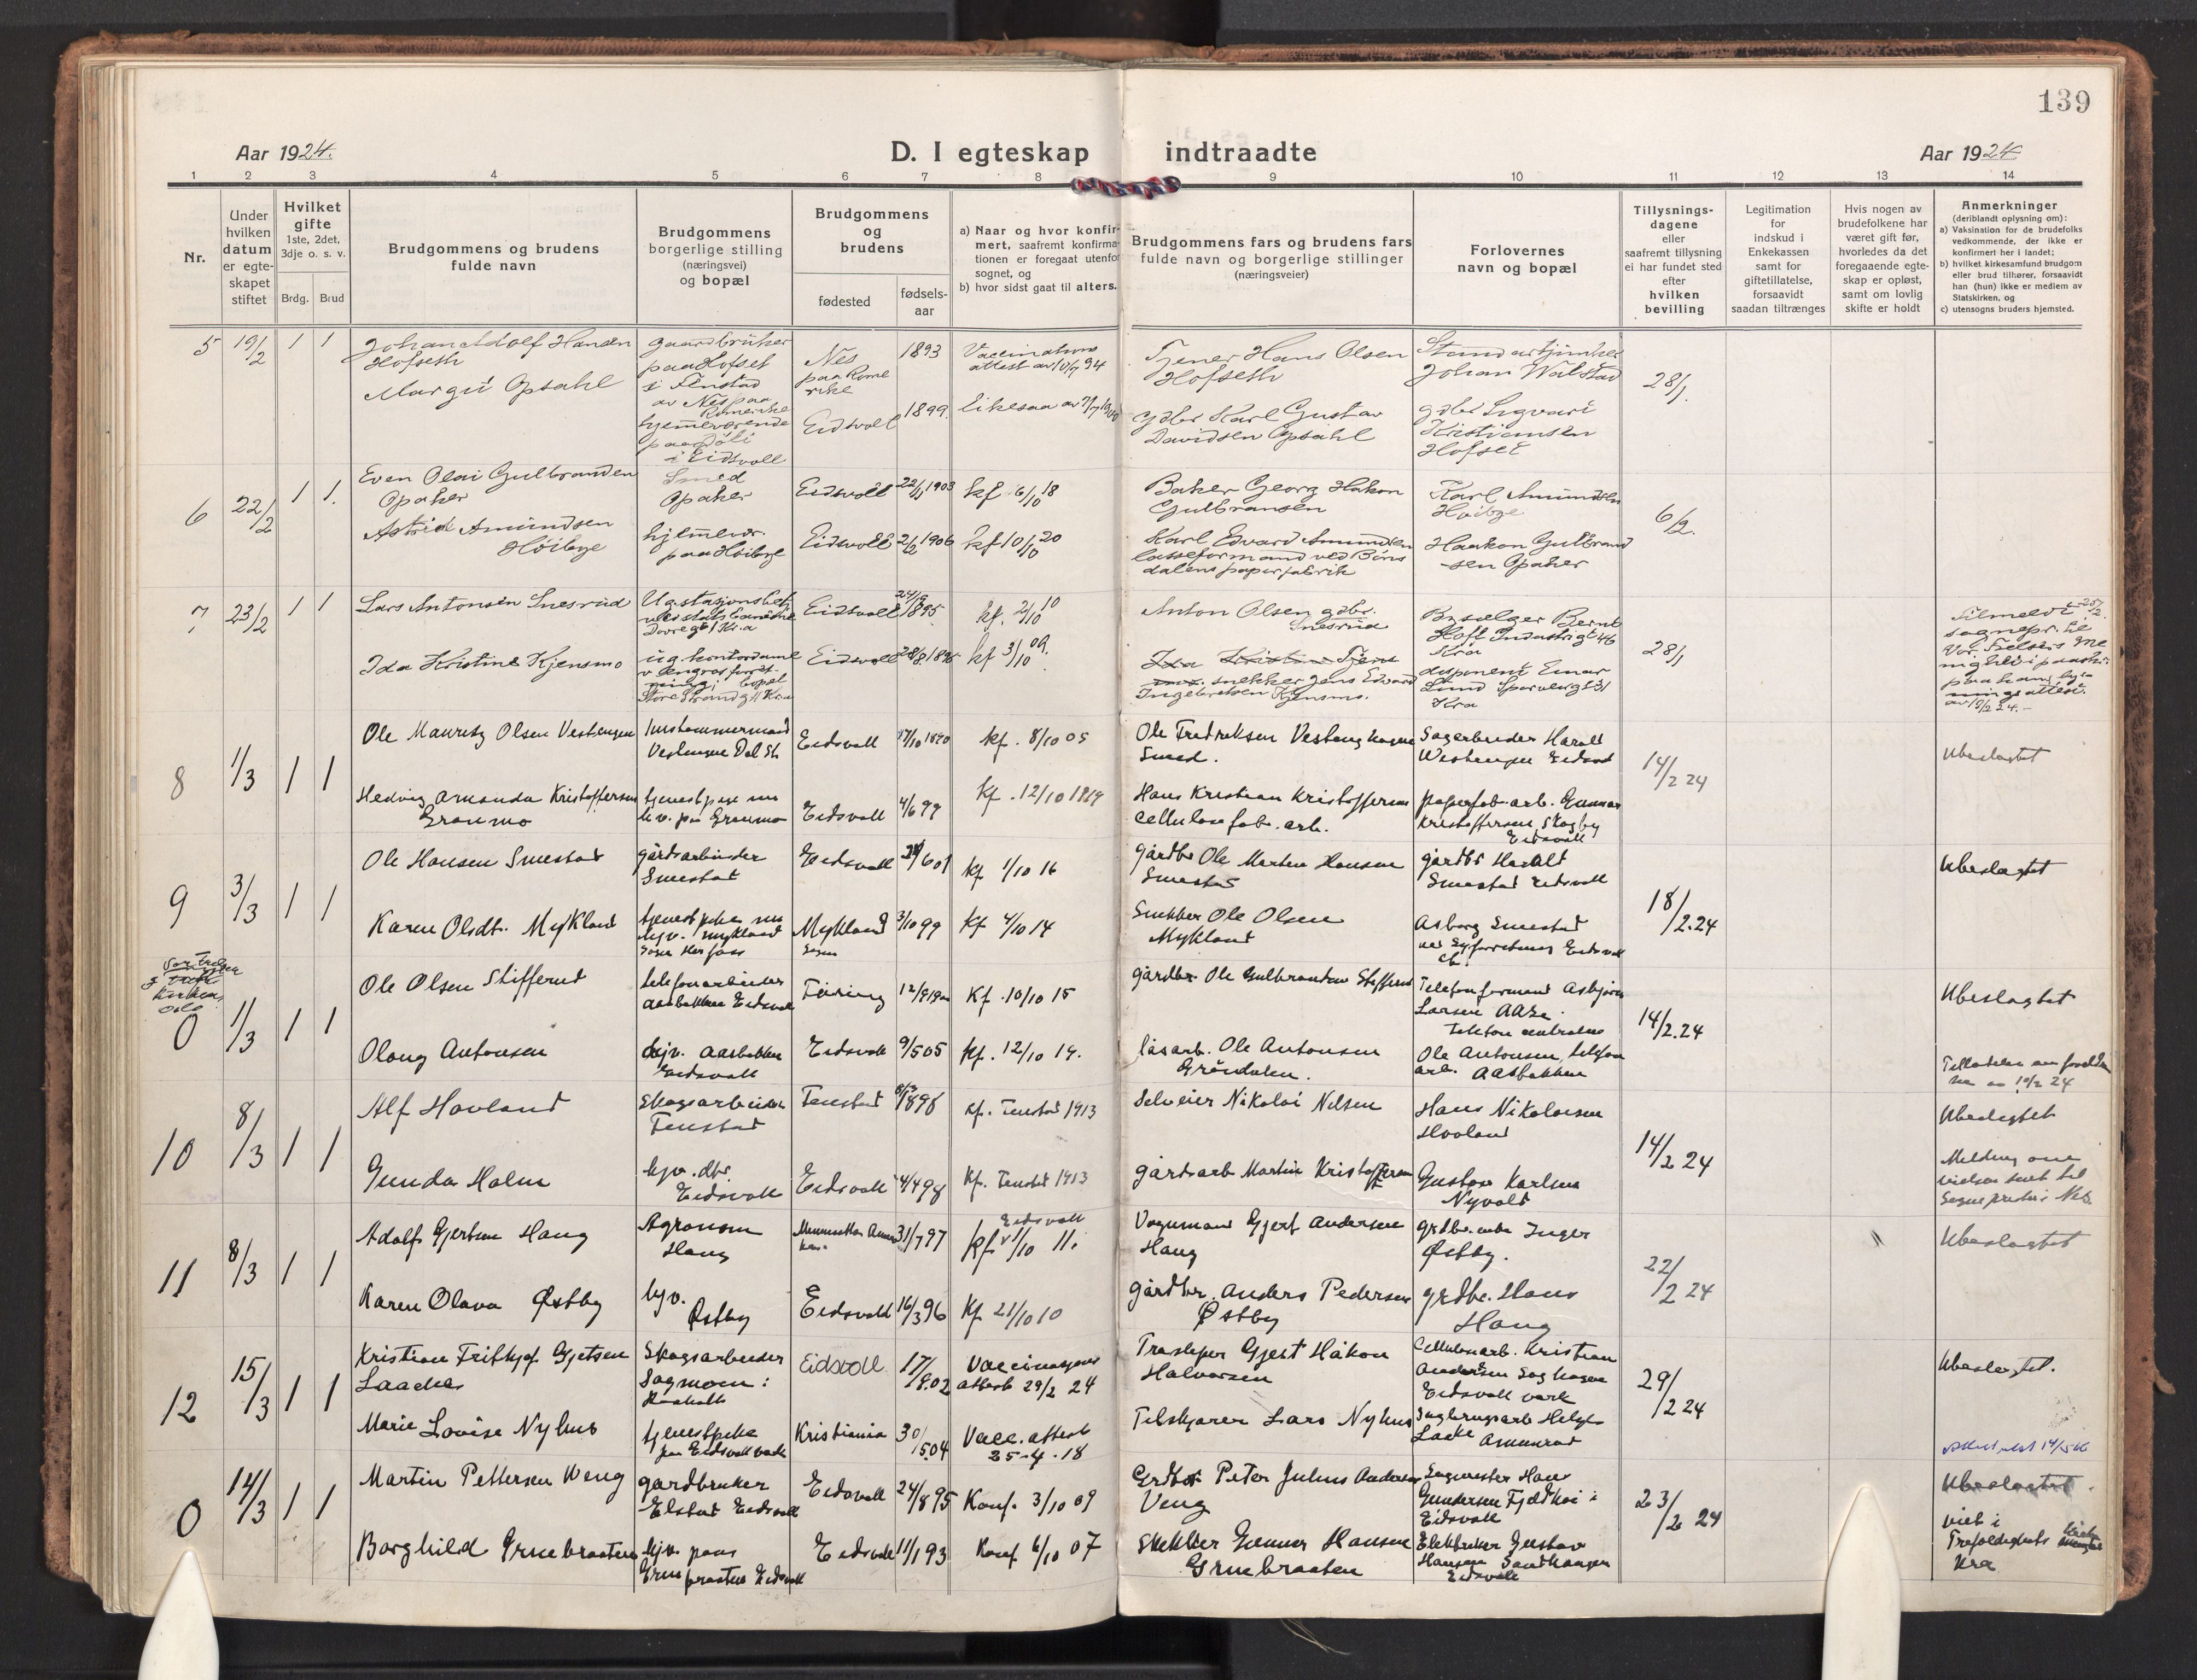 139
Aar 1924.
D. I egteskap indtraadte
Aar 1924
1 2 3 4 5 6 7 8 9 10 11 12 13 14
Nr.
Under
hvilken
datum
er egte-
skapet
stiftet
Hvilket
gifte
1ste, 2det,
3dje o. s. v.
Brdg. Brud
Brudgommens og brudens
fulde navn
Brudgommens og brudens
borgerlige stilling
(næringsvei)
og bopæl
Brudgommens
og
brudens
fødested
fødsels-
aar
a) Naar og hvor konfir-
mert, saafremt konfirma-
tionen er foregaat utenfor
sognet, og
b) hvor sidst gaat til alters.
Brudgommens fars og brudens fars
fulde navn og borgerlige stillinger
(næringsveier)
Forlovernes
navn og bopæl
Tillysnings-
dagene
eller
saafremt tillysning
ei har fundet sted
efter
hvilken
bevilling
Legitimation
for
indskud i
Enkekassen
samt for
giftetillatelse,
forsaavidt
saadan tiltrænges
Hvis nogen av
brudefolkene har
været gift før,
hvorledes da det
foregaaende egte-
skap er opløst,
samt om lovlig
skifte er holdt
Anmerkninger
(deriblandt oplysning om):
a) Vaksination for de brudefolks
vedkommende, der ikke er
konfirmert her i landet;
b) hvilket kirkesamfund brudgom
eller brud tilhører, forsaavidt
han (hun) ikke er medlem av
Statskirken, og
c) utensogns bruders hjemsted.
5 19/2 1 1
Johan Adolf Hansen
Hofseth
Margit Opsahl
Gaardbruker
paa Hofset
i Fenstad
av Nes paa
Romerike
hjemmeværende
paa
i Eidsvoll
Nes
paa Rome
rike
1893
Eidsvoll 1899.
Vaccinations
attest av 10/7 94
likesaa av
Tjener Hans Olsen
Hofseth
Gdbr Karl Gustav
Davidsen Opsahl
Johan Walstad
gdbr Sigvart
Kristiansen
Hofset
28/1.
6 22/2 1 1.
Even Olai Gulbrandsen
Opaker
Astrid Amundsen
Høibye
Smed
Opaker
hjemmevr.
paa Høibye
Eidsvoll 22/1 1903
Eidsvoll 2/2 1906
kf 6/10 18
kf 10/10 20
Baker Georg Hakon
Gulbransen
Karl Edvard Amundsen
lasseformand ved Bøns
dalens papirfabrik
Karl Amundsen
Høibye
Haakon Gulbrand
-sen Opaker
6/2.
7 23/2 1 1
Lars Antonsen Snesrud
Ida Kristine Kjensmo
Eidsvoll 24/9 1895.
Eidsvoll 28/8 1895
kf. 2/10 10
kf 3/10 09.
Anton Olsen gdbr.
Snesrud
Ida Kristine
snekker Jens Edvard
Ingebretsen Kjensmo.
Byselger Bernt
Hoft Industrigt 46
Kra
disponent Einar
Lund
Kra
28/1
Tilmeldt
sognepr. til
Vor Frelsers me
nighet i
av 19/2 24.-
8 1/3 1 1
Ole Mauritz Olsen Vestengen
Hedvig Amanda Kristoffersen
Graumo
hustømmermand
Vestengen Dal St.
tjenestpike nu
hv. på Graumo
Eidsvoll 17/10 1890
Eidsvoll 4/6 99
kf. 8/10 05
kf. 12/10 1914
Ole Fredriksen Vesteng hagen
Smed.
Hans Kristian Kristoffersen
cellulose fab. arb.
Sagarbeider Harald
Westengen Eidsvoll
papirfab. arb. Gunnar
Kristoffersen Skogby
Eidsvoll
14/2 24
Ubeslagtet
9 3/3 1 1
Ole Hansen Smestad
Karen Olsdt. Mykland
gårdsarbeider
Smestad
tjenestpike nu
hjv. Mykland
Eidsvoll
Mykland 3/10 99
kf 1/10 16
kf 4/10 14
gårdbr Ole Martin Hansen
Smestad
Snekker Ole Olsen
Mykland
gårdbr Harald
Smestad Eidsvoll
Asborg Smestad
18/2.24
Ubeslagtet
Vor Frelsers
kirken
Oslo
0 1/3 1 1
Ole Olsen Stifferud
Olaug Antonsen
telefonarbeider
Aasbakken Eidsvoll
hjv. Aasbakken
Eidsvoll
Eidsvoll 9/5 05
Kf. 10/10 15
kf. 12/10 19.
gårdbr. Ole Gulbrandsen Stifferud
låsarb. Ole Antonsen
Grøndalen.
Telefonformand Asbjørn
Larsen
Ole Antonsen, telefon
arb. Aasbakken
14/2.24
Ubeslagtet
Tilladelse av foreldre
ne av 10/2 24
10 8/3 1 1
Alf Hovland
Gunda Holm
Skogsarbeider
Fenstad
hjv. dtr.
Eidsvoll
Fenstad 1898
Eidsvoll 14/4 98
kf. Fenstad 1913
Kf. Fenstad 1913
Selveier Nikolai Nilsen
gårdsarb Martin Kristoffersen
Hans Nikolaisen
Hovland
Gustav Karlsen
Nyvold
14/2 24
Ubeslagtet
Melding om
vielsen sendt til
Sogneprestens Nes
11 8/3 1 1
Adolf Gjertsen Haug
Karen Olava Østby
Agronom
Haug
hjv.
Østby
31/7 97
Eidsvold 16/3 96
Eidsvoll
kf 1/10 11.
kf 21/10 10
Vognmand Gjert Andersen
Haug
gårdbr. Anders Pedersen
Østby
Grdbr. enke Inger
Østby.
grdbr. Hans
Haug
22/2 24
Ubeslagtet
12 15/3 1 1
Kristian Frithjof Gjetsen
Laache
Marie Lovise Nyhus
Skogsarbeider
Sagmoen:
Raaholt
tjenestpike
paa Eidsvoll verk
Eidsvoll 17/8.02
Kristiania 30/5.04
Vaccinasjons
attest 29/2 24
Vacc. attest
25-4-18
Træsliper Gjert Håkon
Halvorsen
Tilskjærer Lars Nyhus
Cellulosearb. Kristian
Andersen Saghagen
Eidsvoll verk
Sagbrugsarb Helge
Laake Ammerud
29/2 24
Ubeslagtet.
0 14/3 1 1
Martin Pettersen Weng
Borghild Gruebraaten
gardbruker
Elstad Eidsvoll
hjv. paa
Gruebraaten Eidsvoll
Eidsvoll 24/8 95
Eidsvoll 11/1 93
Konf. 3/10 09
Konf 6/10 07
Grdbr Peter Julius Andersen
Veng
Snekker Gunner Hansen
Gruebraaten
Sagmester Hans
Gundersen Fjeldhøi i
Eidsvoll
Elektriker Gustav
Hansen Sandhaugen
Eidsvoll
23/2 24
Ubeslagtet.
viet i
Trefoldigheds kirke
Kra